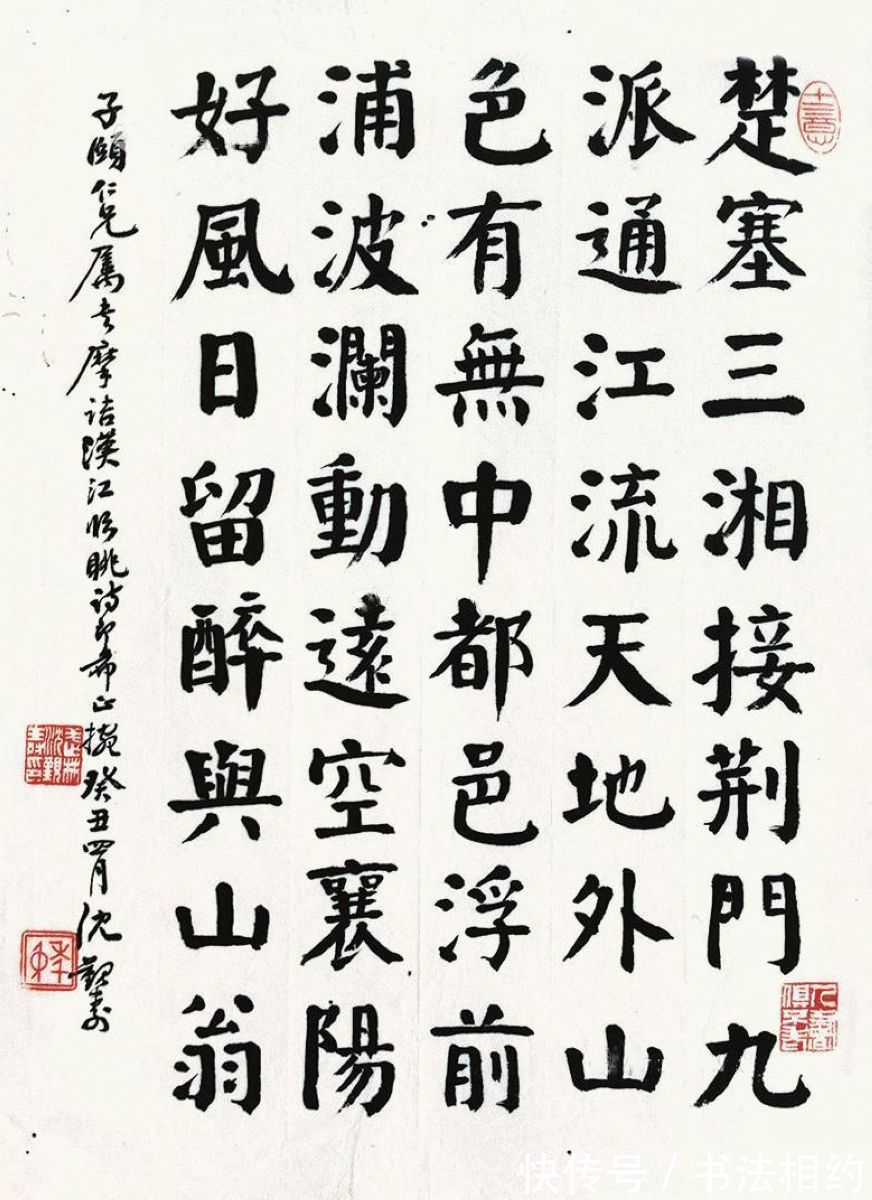 楚塞三湘接荆門九
派通江流天地外山
色有無中都邑浮前
浦波瀾動遠空襄陽
好風日留醉與山翁
子頤仁兄属书摩詰漢江临眺诗即希正挽癸丑四月沈觀壽
快传号/书法相约